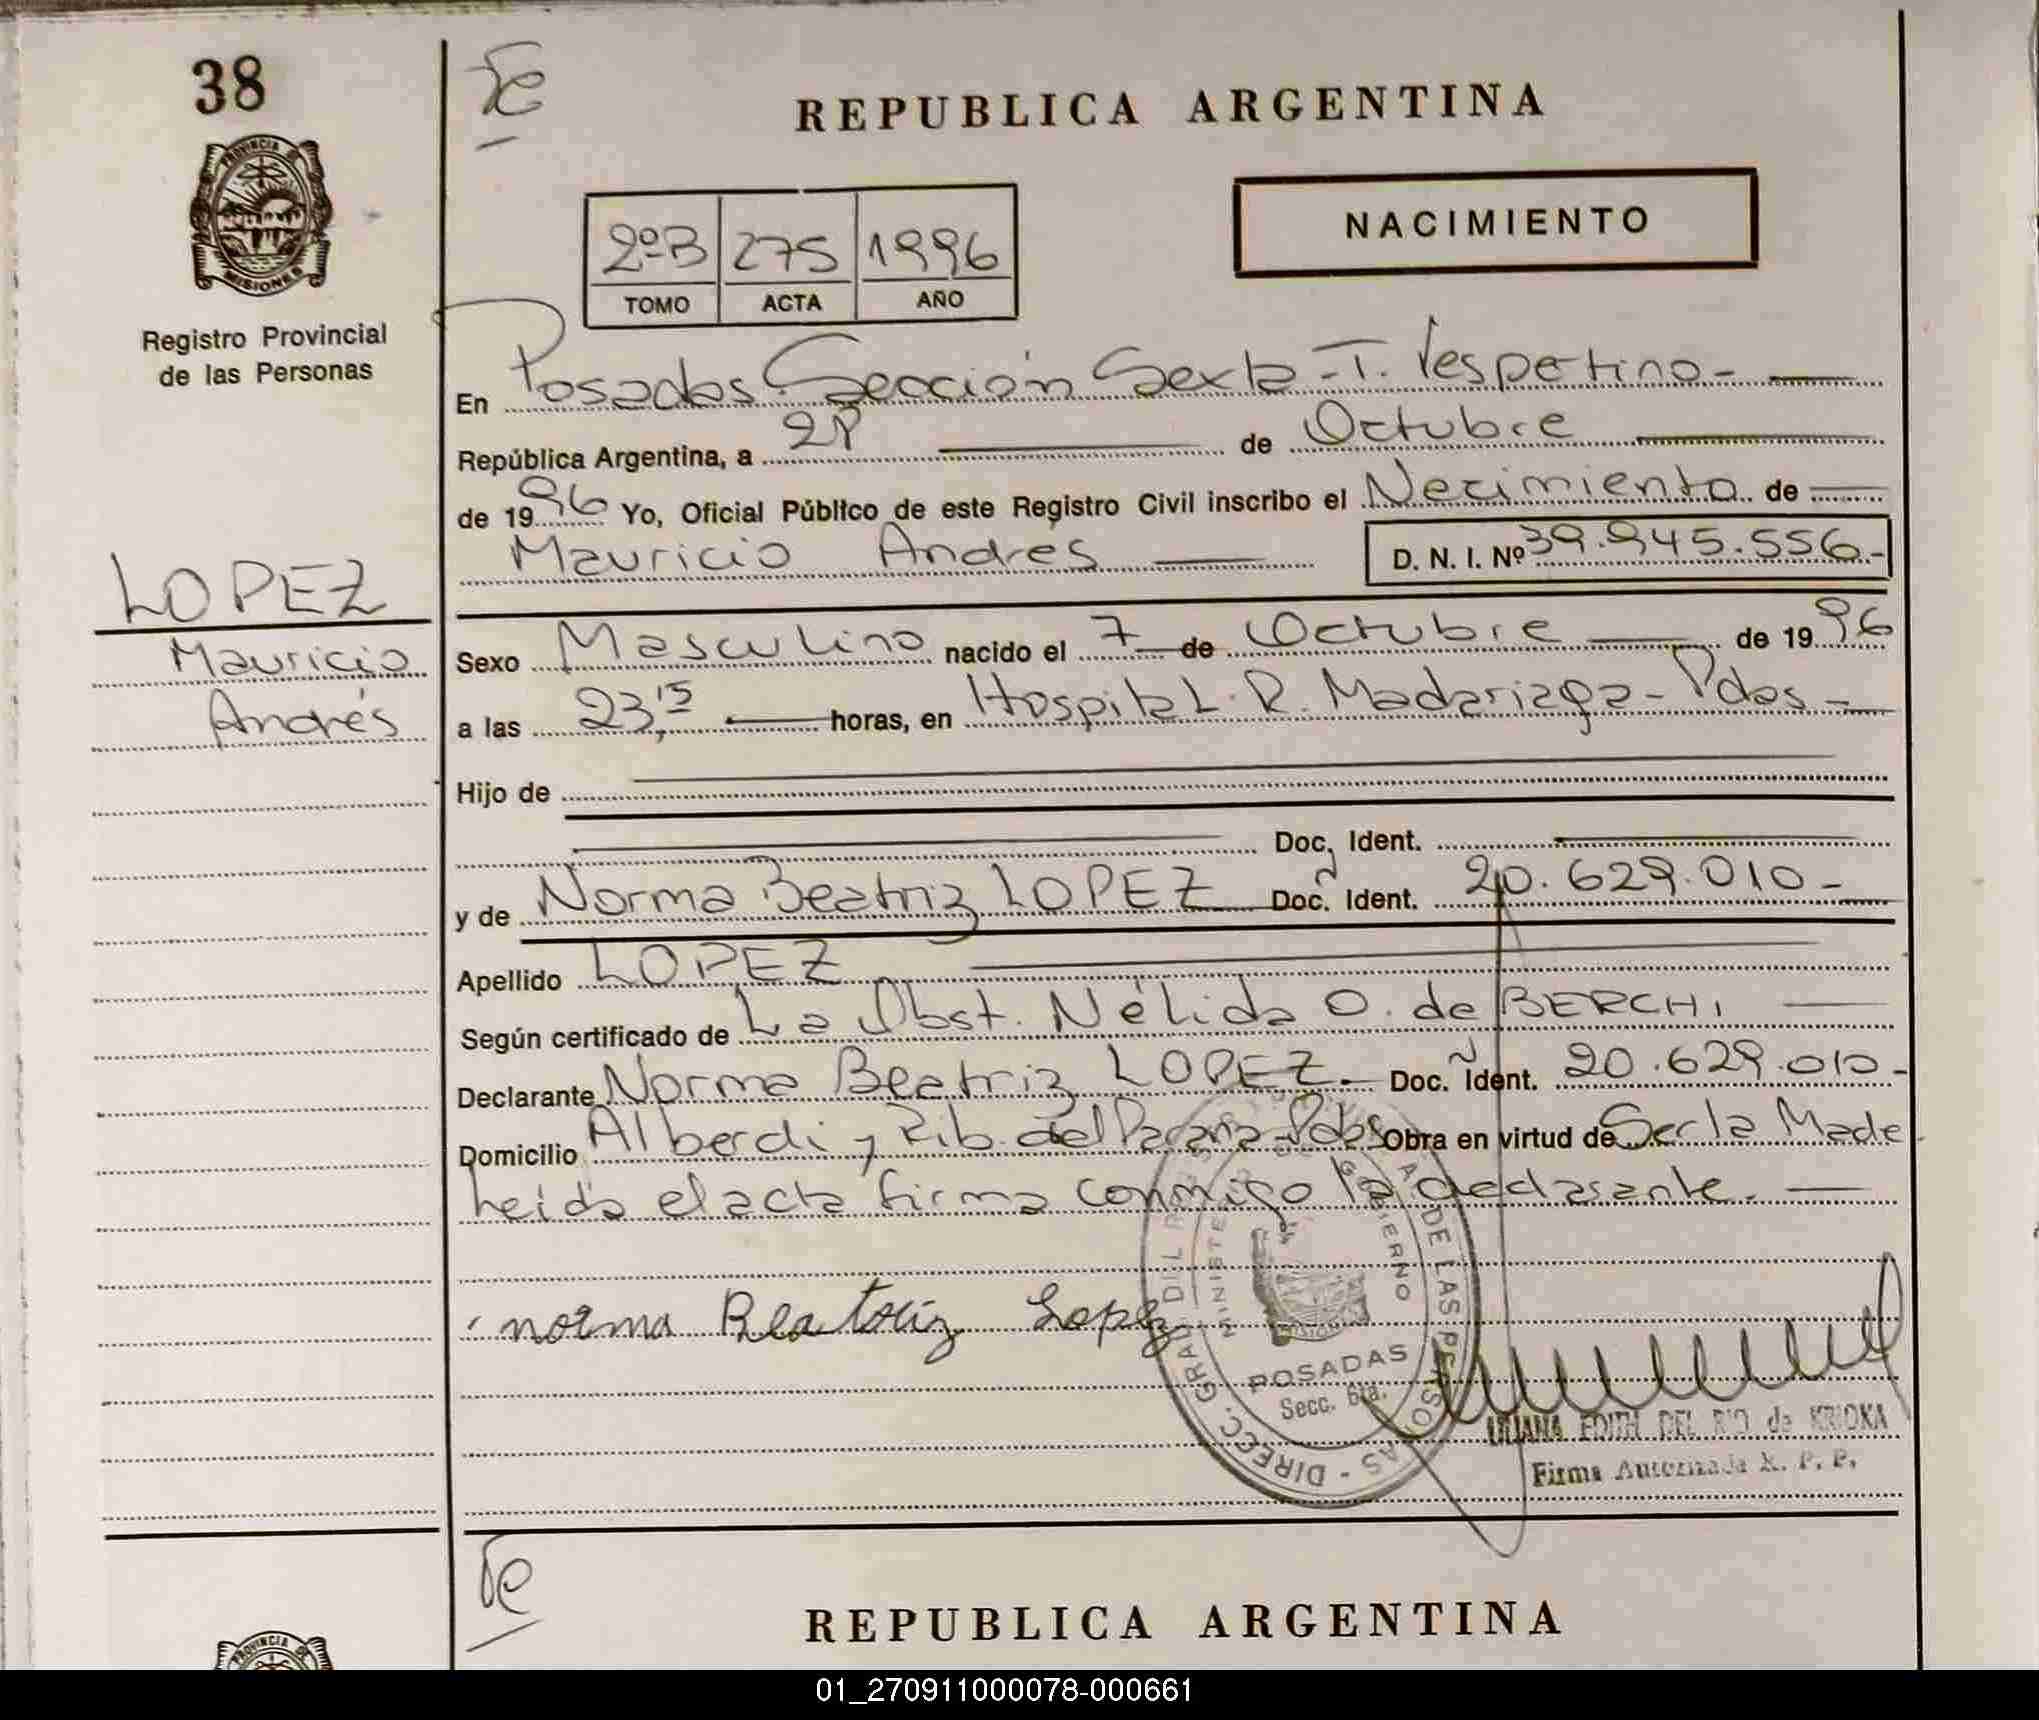 38
PROVINCIA DE
MISIONES
Registro Provincial
de las Personas
LOPEZ
Mauricio
Andrés
Te
REPUBLICA ARGENTINA
2ºB 275 1996
TOMO ACTA AÑO
NACIMIENTO
En Posadas. Sección Sexta - T. Vespertino -
República Argentina, a 28 de Octubre
de 1996 Yo, Oficial Público de este Registro Civil inscribo el Nacimiento de
Mauricio Andrés D. N. I. Nº 39.945.556.-
Sexo Masculino nacido el 7 de Octubre de 1996
a las 23,15 horas, en Hospital. R. Madariaga - Pdas -
Hijo de
Doc. Ident.
y de Norma Beatriz LOPEZ Doc. Ident. 20.629.010 -
Apellido LOPEZ
Según certificado de La Obst. Nélida O. de BERCHI
Declarante Norma Beatriz LOPEZ. Doc. Ident. 20.629.010 -
Domicilio Alberdi y Rib. del Paraná - Pdas Obra en virtud de Ser la Madre
Leida el acta firma conmigo la declarante.
norma Beatriz Lopez
MINISTE GOBIERNO
POSADAS
Secc. 6ta.
DIRECC. GRAL DEL R DE LAS PERSONAS
LILIANA EDITH DEL RIO de KRIOKA
Firma Autorizada R. P. P.
Te
REPUBLICA ARGENTINA
PROVINCIA DE
01_270911000078-000661